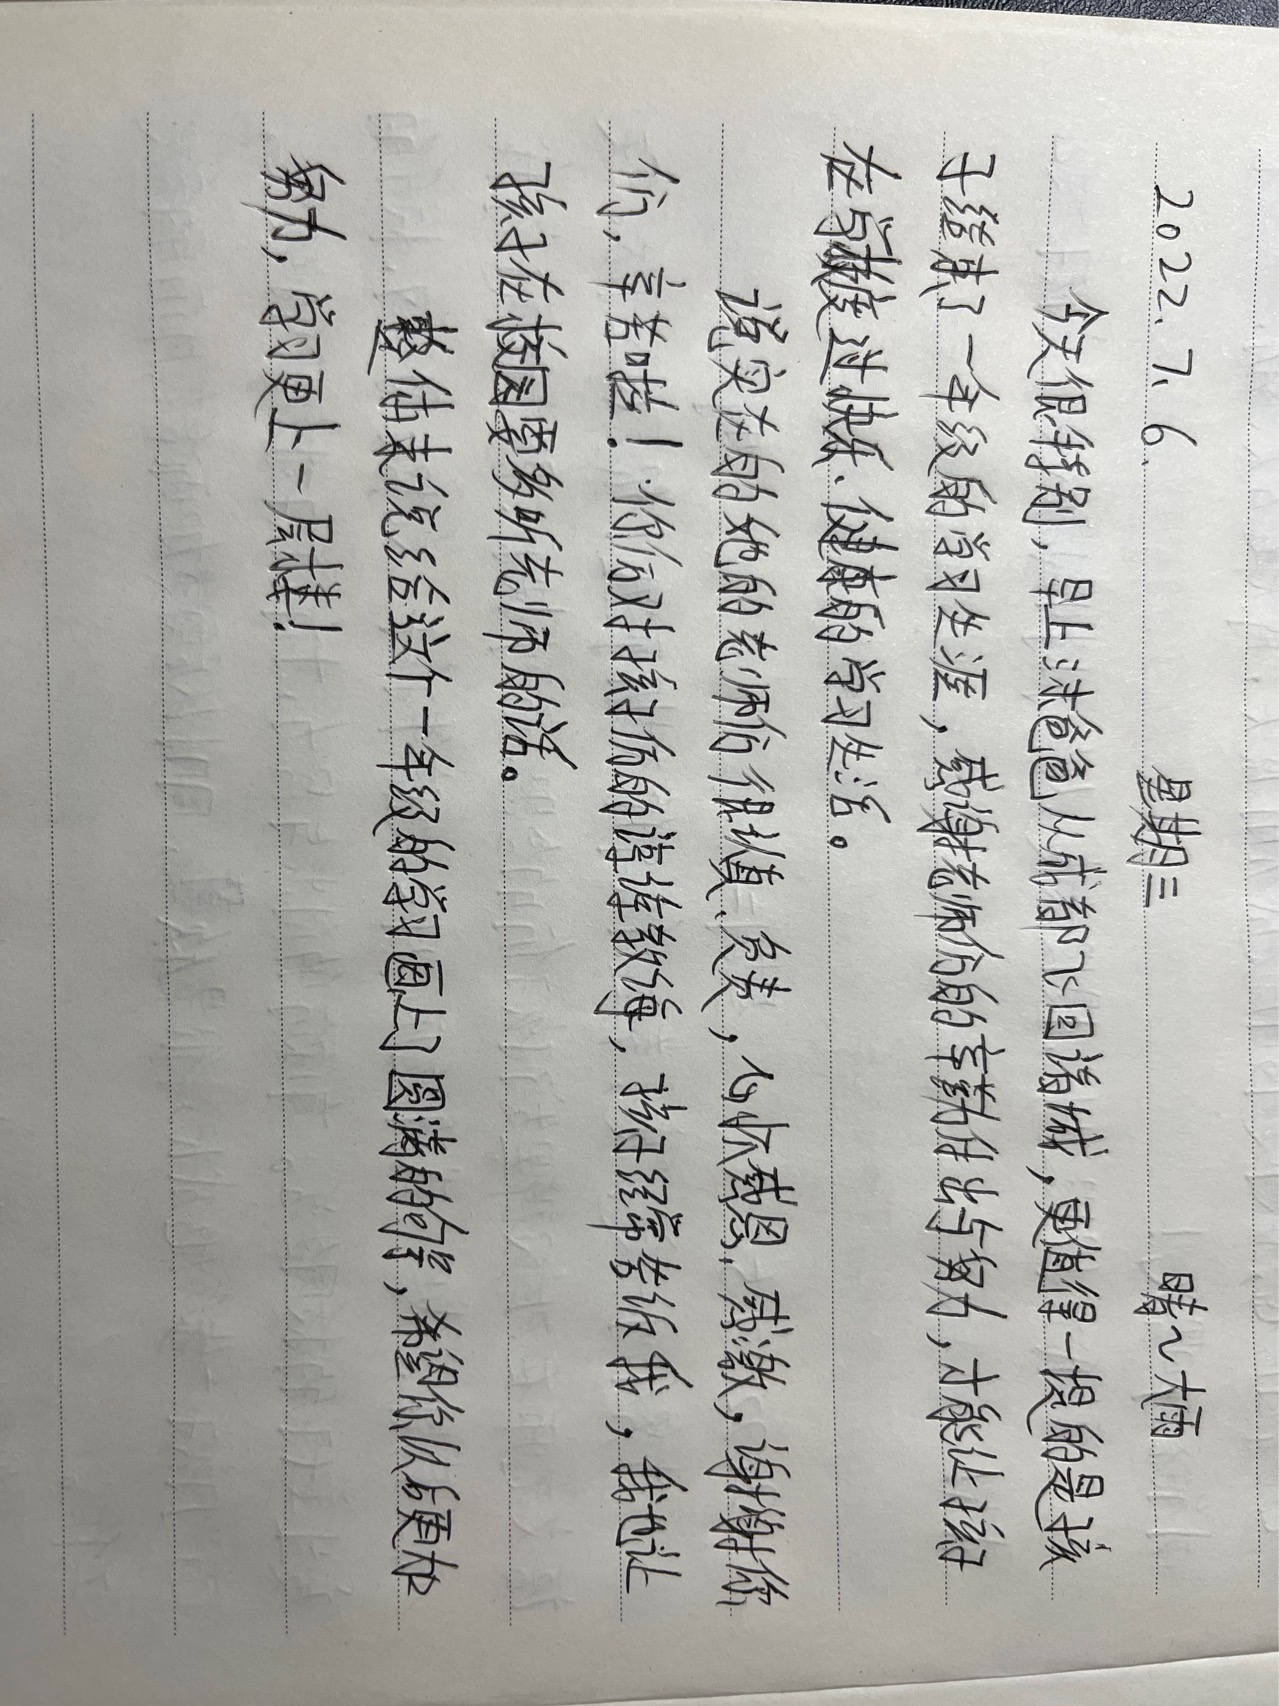 2022.7.6. 星期三 晴~大雨
今天很特别，早上沫爸爸从成都飞回诸城，更值得一提的是孩
子结束了一年级的学习生涯，感谢老师们的辛勤付出与努力，才能让孩子
在学校度过快乐、健康的学习生活。
说实在的她的老师们很认真、负责，心怀感恩、感激，谢谢你
们，辛苦啦！你们对孩子们的谆谆教诲，孩子经常告诉我，我也让
孩子在校园要多听老师的话。
整体来说给这个一年级的学习画上了圆满的句号，希望你以后更加
努力，学习更上一层楼！